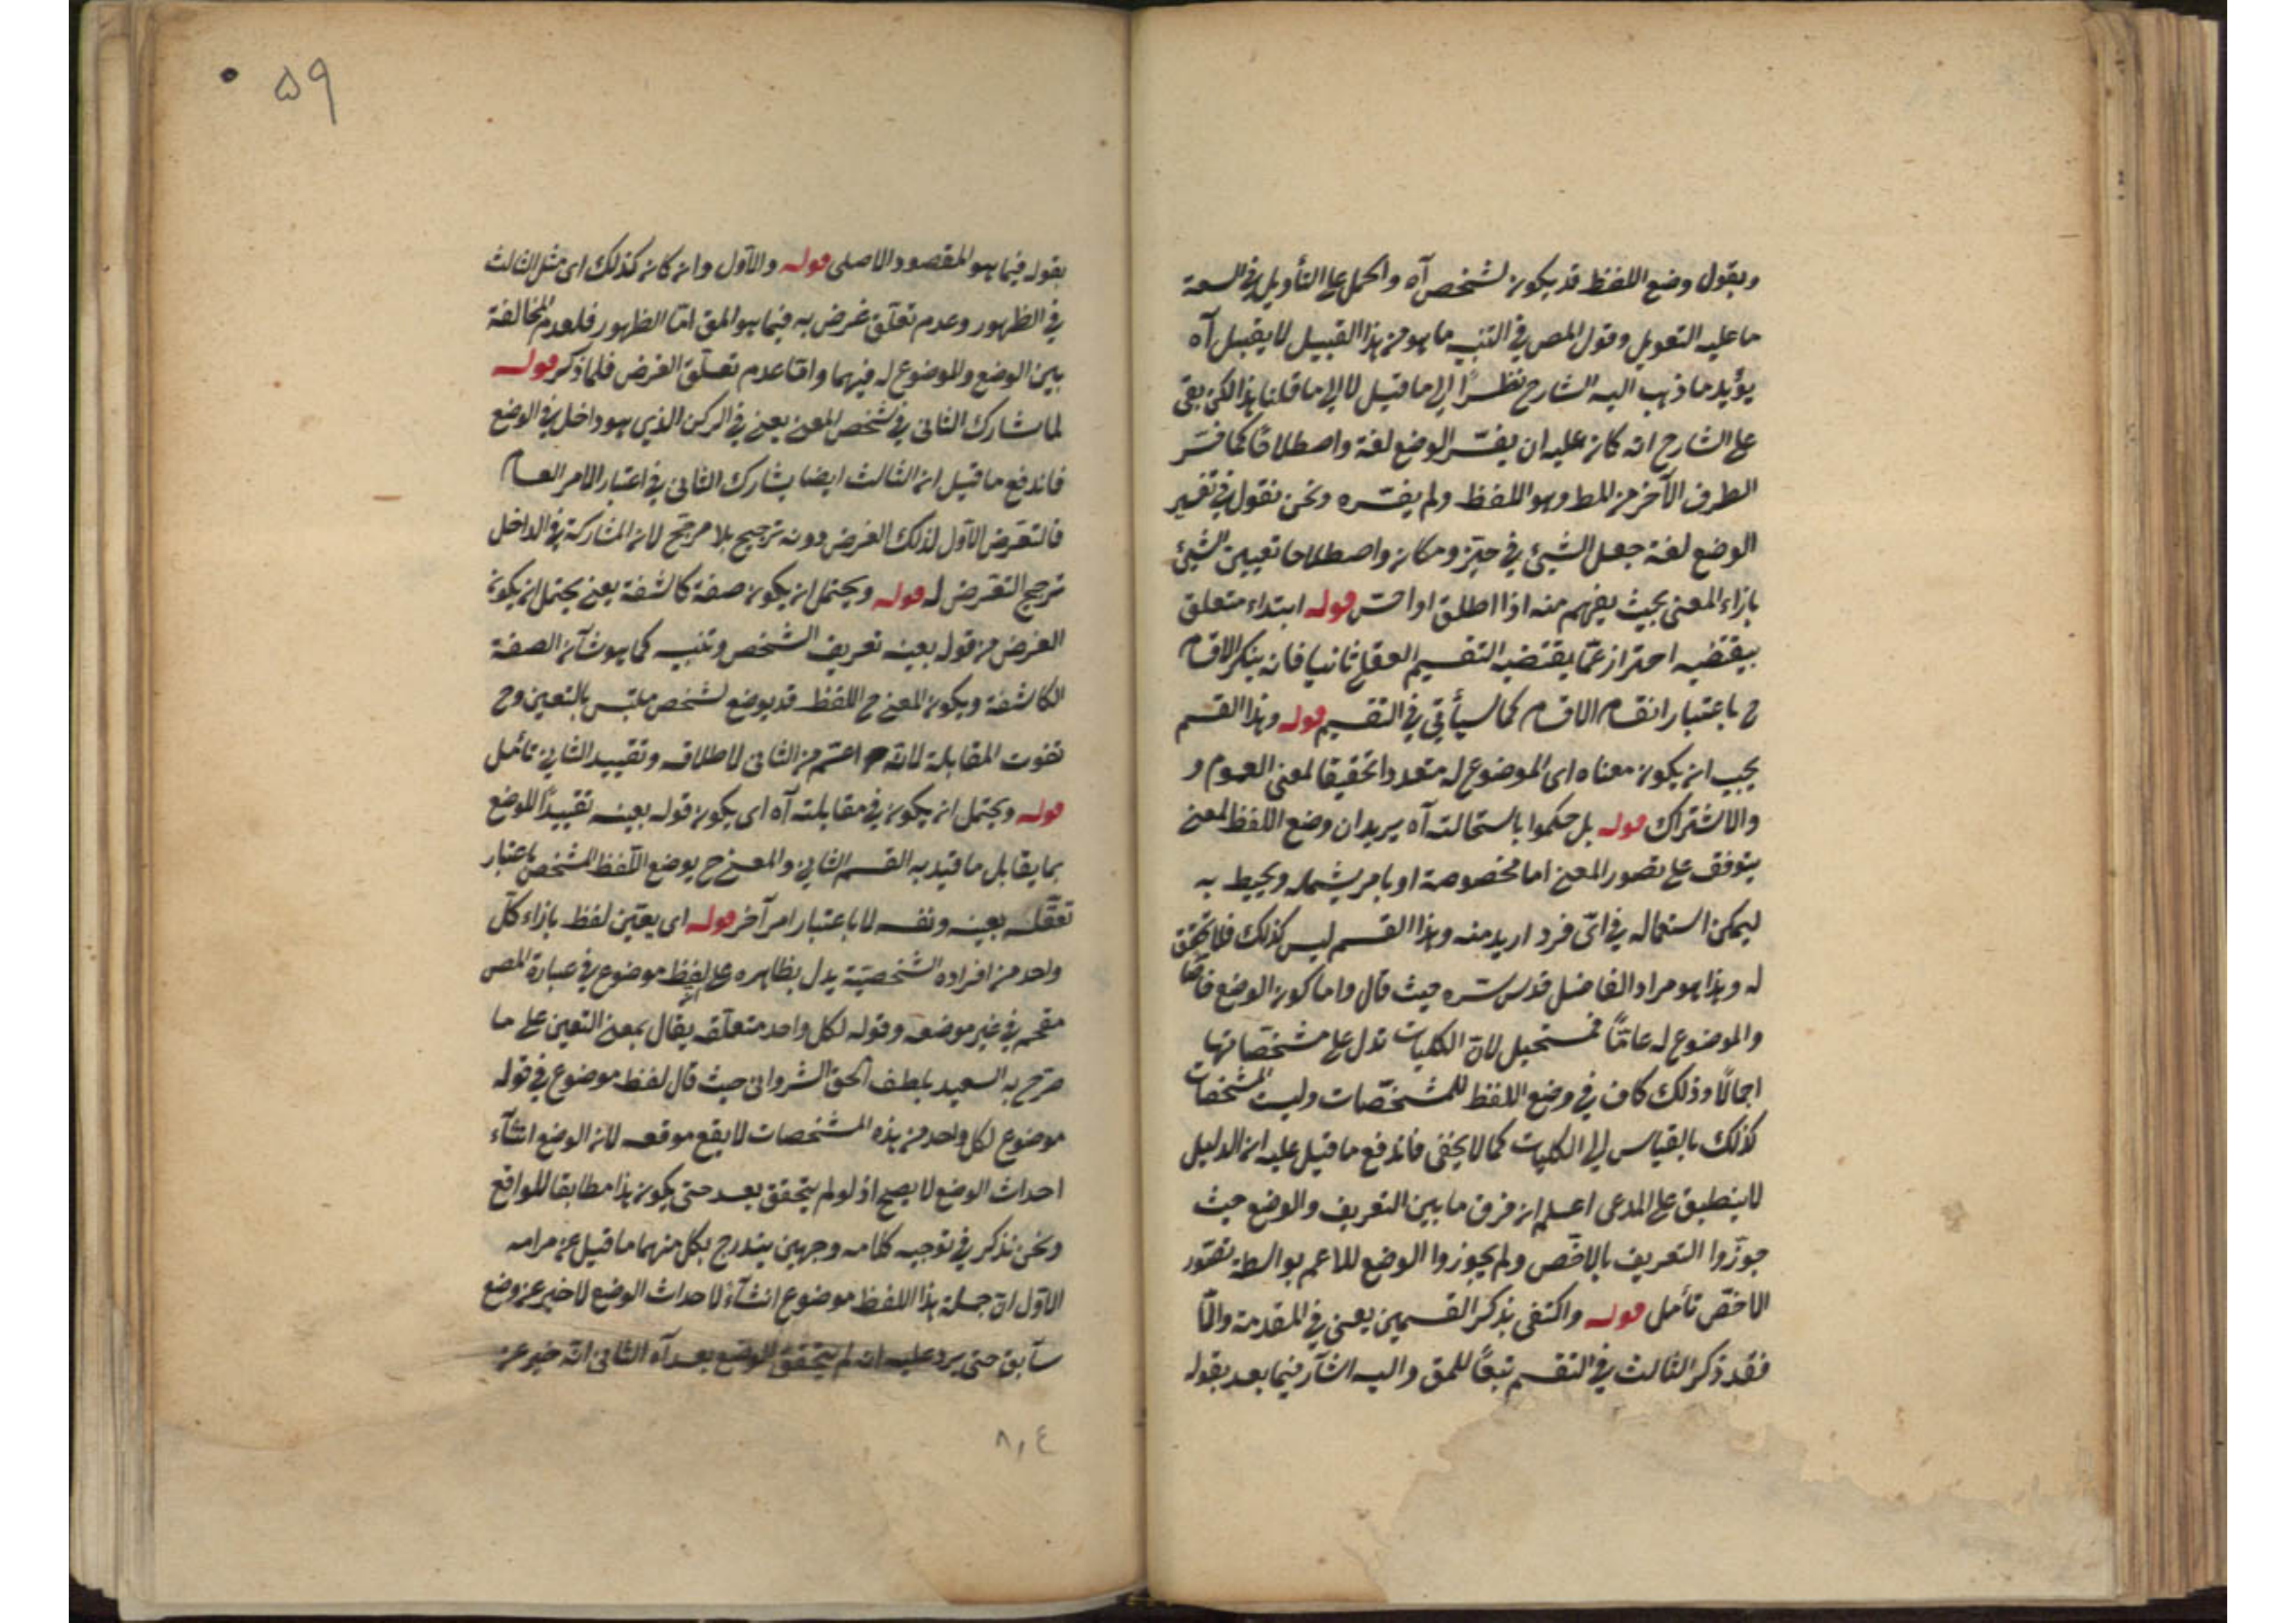 ويقول وضع اللفظ قد يكون لشخص آه والحمل على التأويل في السعة
ما عليه التعويل وقول المص في التنبيه ما هو من هذا القبيل لا يقبل آه
يؤيد ما ذهب اليه الشارح نظرًا الى ما قيل لا الى ما قلنا هذا لكن بقى
على الشارح انه كان عليه ان يفسّر الوضع لغة واصطلاحًا كما فسّر
الطرف الآخر من المط وهو اللفظ ولم يفسّره ونحن نقول في تفسير
الوضع لغة جعل الشيئ في حيّز ومكان واصطلاحا تعيين الشيئ
بازاء المعنى بحيث يفهم منه اذا اطلق او احسّ قوله ابتداء متعلق
بيقتضيه احتراز عمّا يقتضيه التقسيم العقلي ثانيا فانه ينكر الاقسام
ح باعتبار انقسام الاقسام كما سيأتي في التقسيم قوله وهذا القسم
يجب ان يكون معناه اى الموضوع له متعددا تحقيقا لمعنى العموم و
والاشتراك قوله بل حكموا باستحالته آه يريد ان وضع اللفظ لمعنى
يتوقف على تصور المعنى اما مخصوصة او بامر يشمله ويحيط به
ليمكن استعماله في اىّ فرد اريد منه وهذا القسم ليس كذلك فلا تحقق
له وهذا هو مراد الفاضل قدس سره حيث قال واما كون الوضع خاصّا
والموضوع له عامًّا فمستحيل لانّ الكليات تدل على مشخّصاتها
اجمالًا وذلك كاف في وضع اللفظ للمشخّصات وليست المشخّصات
كذلك بالقياس الى الكليات كما لا يخفى فاندفع ما قيل عليه ان الدليل
لا ينطبق على المدعى اعلم ان فرق ما بين التعريف والوضع حيث
جوّزوا التعريف بالاخّص ولم يجوزوا الوضع للاعم بواسطة تصّور
الاخصّ تأمل قوله واكتفى بذكر القسمين يعنى في المقدمة والّا
فقد ذكر الثالث في التقسيم تبعًا للمق واليه اشآر فيما بعد بقوله
۵۹
بقوله فيما هو المقصود الاصلى قوله والاوّل وان كان كذلك اى مثل الثالث
في الظهور وعدم تعلّق غرض به فيما هو المق امّا الظهور فلعدم المخالفة
بين الوضع والموضوع له فيهما وامّا عدم تعلّق الغرض فلما ذكر قوله
لما شارك الثانى في تشخص المعنى يعنى في الركن الذي هو داخل في الوضع
فاندفع ما قيل ان الثالث ايضا يشارك الثانى في اعتبار الامر العام
فالتعرض الاول لذلك الغرض دونه ترجيح بلا مرجّح لان المشاركة في الداخل
ترجح التعرض له قوله ويحتمل ان يكون صفة كاشفة يعنى يحتمل ان يكون
الغرض من قوله بعينه تعريف الشخص وتنبيه كما هو شآن الصفة
الكاشفة ويكون المعنى ح اللفظ قد يوضع لشخص ملتبس بالتعين وح
تفوت المقابلة لانه اعّم من الثانى لاطلاقه وتقييد الثاني تأمل
قوله ويحتمل ان يكون في مقابلته آه اى يكون قوله بعينه تقييدًا للوضع
بما يقابل ما قيد به القسم الثاني والمعنى ح يوضع اللّفظ لشخص باعتبار
تعقّله بعينه ونفسه لا باعتبار امر آخر قوله اى يعيّن لفظ بازاء كلّ
واحد من افراده الشخصيّة يدل بظاهره على لفظ موضوع في عبارة المص
مقحم في غير موضعه وقوله لكل واحد متعلّقه يقال بمعنى التعين على ما
صرّح به السعيد بلطف الحق الشروانى حيث قال لفظ موضوع في قوله
موضوع لكل واحد من هذه المشخصات لا يقع موقعه لان الوضع انشآء
احداث الوضع لا يصح اذ لو لم يتحقق بعد حتى يكون هذا مطابقا للواقع
ونحن نذكر في توجيه كلامه وجهين يندرج بكل منهما ما قيل عن مرامه
الاوّل انّ جملة هذا اللفظ موضوع انشآء لاحداث الوضع لا خبر عن وضع
سآبق حتى يرد عليه انه لم يتحقق الوضع بعد آه الثانى انّه خبر عن
٨١٤